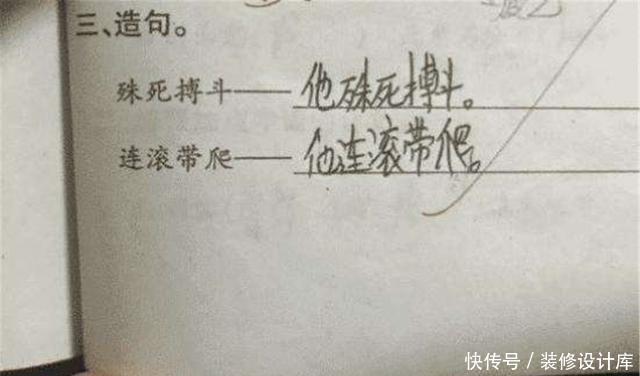 三、造句。
殊死搏斗——他殊死搏斗。
连滚带爬——他连滚带爬。
快传号/装修设计库